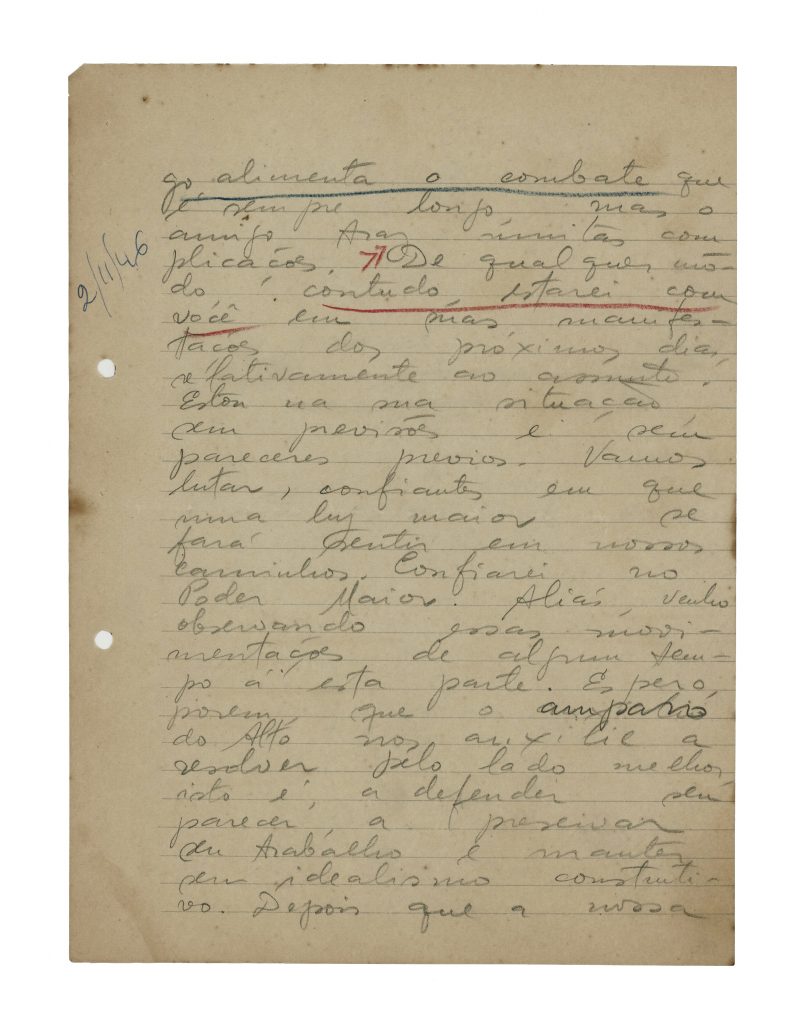 go alimenta o combate que
é sempre longo mas o
amigo traz muitas com
plicações. De qualquer mo-
do contudo estarei com
você em suas manifes-
tações dos próximos dias
relativamente ao assunto.
Estou na sua situação
sem previsões e sem
pareceres previos. Vamos
lutar, confiantes em que
uma luz maior se
fará sentir em nossos
caminhos. Confiarei no
Poder Maior. Aliás, venho
observando essas movi-
mentações de algum tem-
po á esta parte. Espero,
porem, que o amparo
do Alto nos auxilie a
resolver pelo lado melhor,
isto é, a defender seu
parecer, a preservar
seu trabalho e manter
seu idealismo construti-
vo. Depois que a nossa
2/11/46